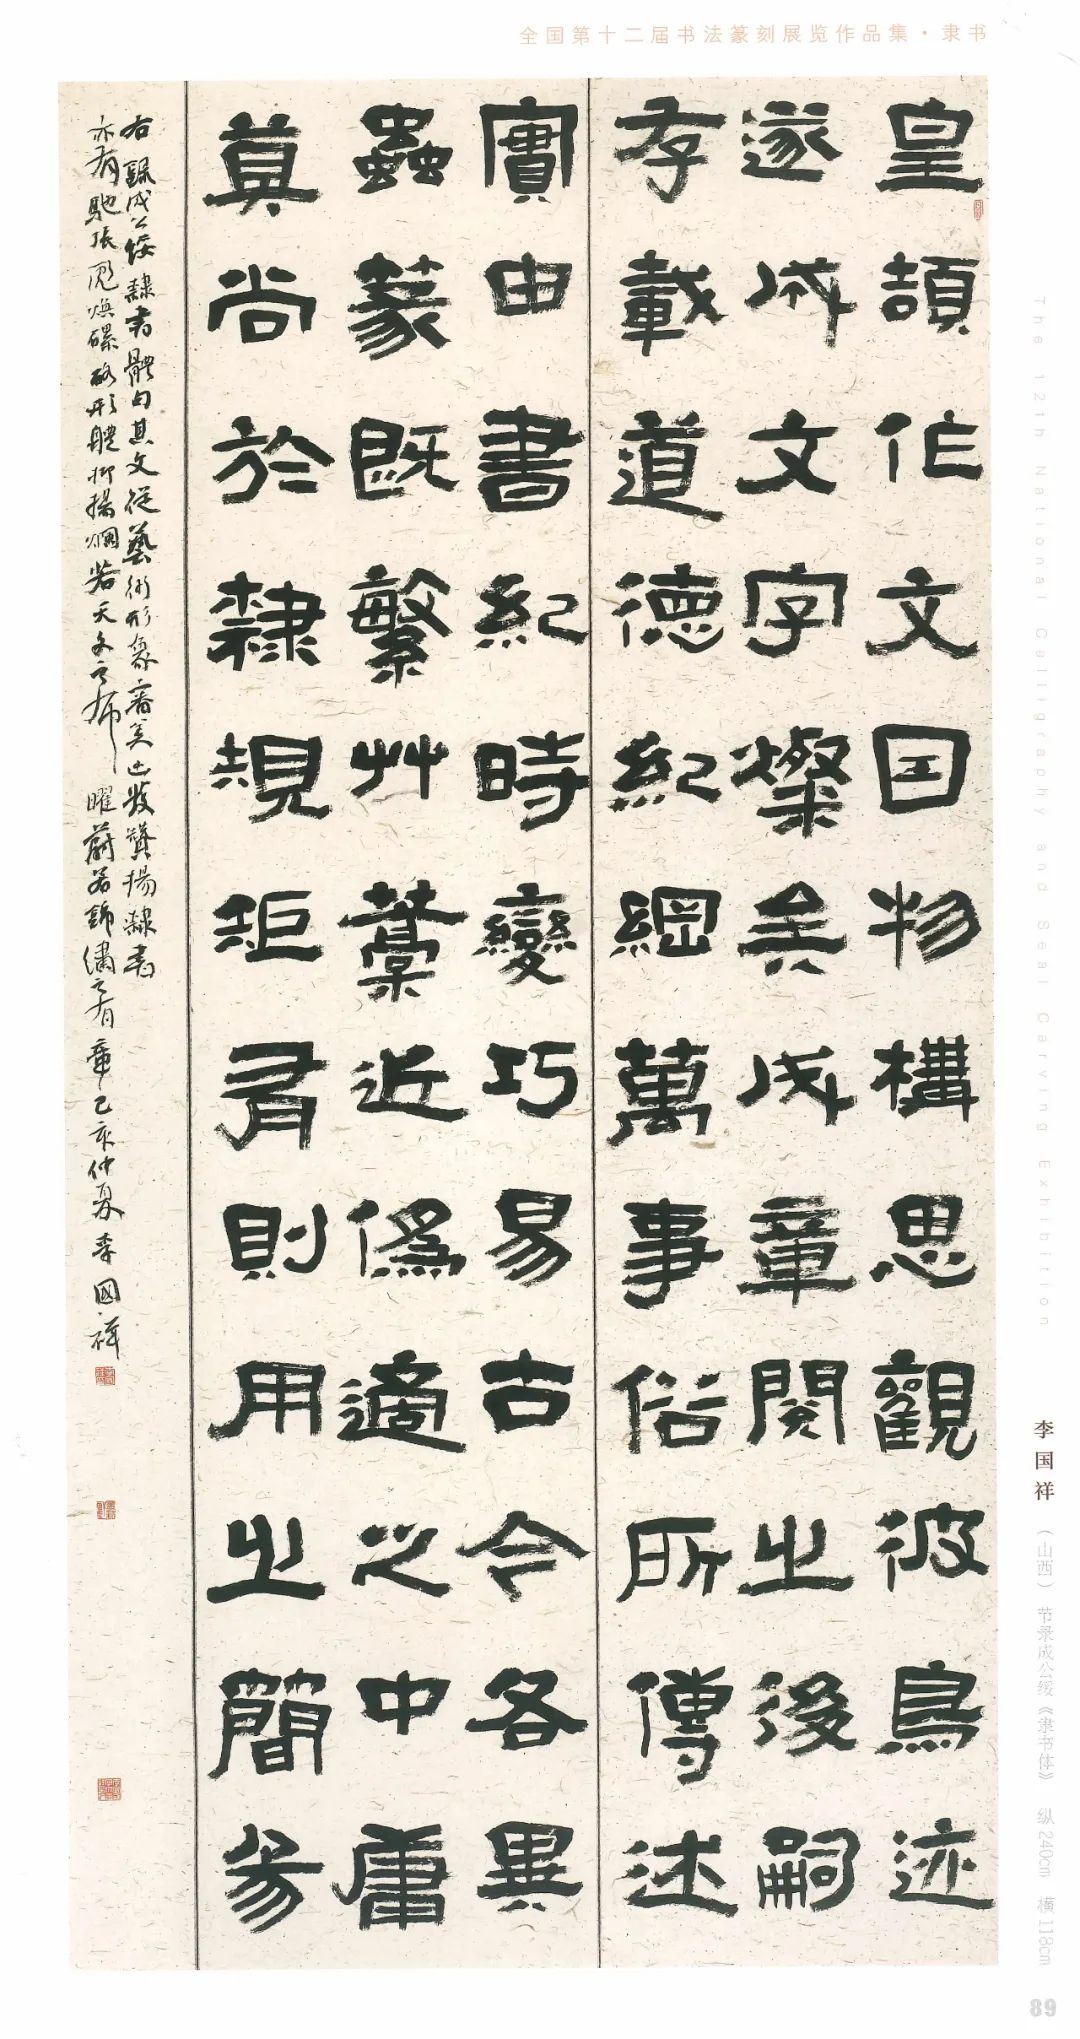 全国第十二届书法篆刻展览作品集·隶书
皇頡作文因物構思觀彼鳥迹
遂成文字燦矣成章閱之後嗣
存載道德紀綱萬事俗所傳述
實由書紀時變巧易古今各異
蟲篆既繁艸藁近僞適之中庸
莫尚於隸規矩有則用之簡易
右録成公綏隸書體句其文從藝術形象審美出發贊揚隸書
亦有馳張彪煥磥硌形體抑揚爛若天文之布曜蔚若錦繡之有章己亥仲夏李國祥
The 12th National Calligraphy and Seal Carving Exhibition
李国祥（山西）节录成公绥《隶书体》 纵240cm 横118cm
89